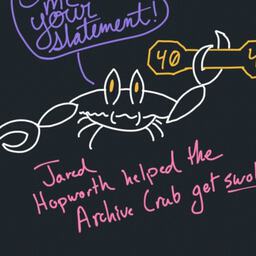 me
your
statement!
40
Jared
Hopworth helped the
Archive Crab get